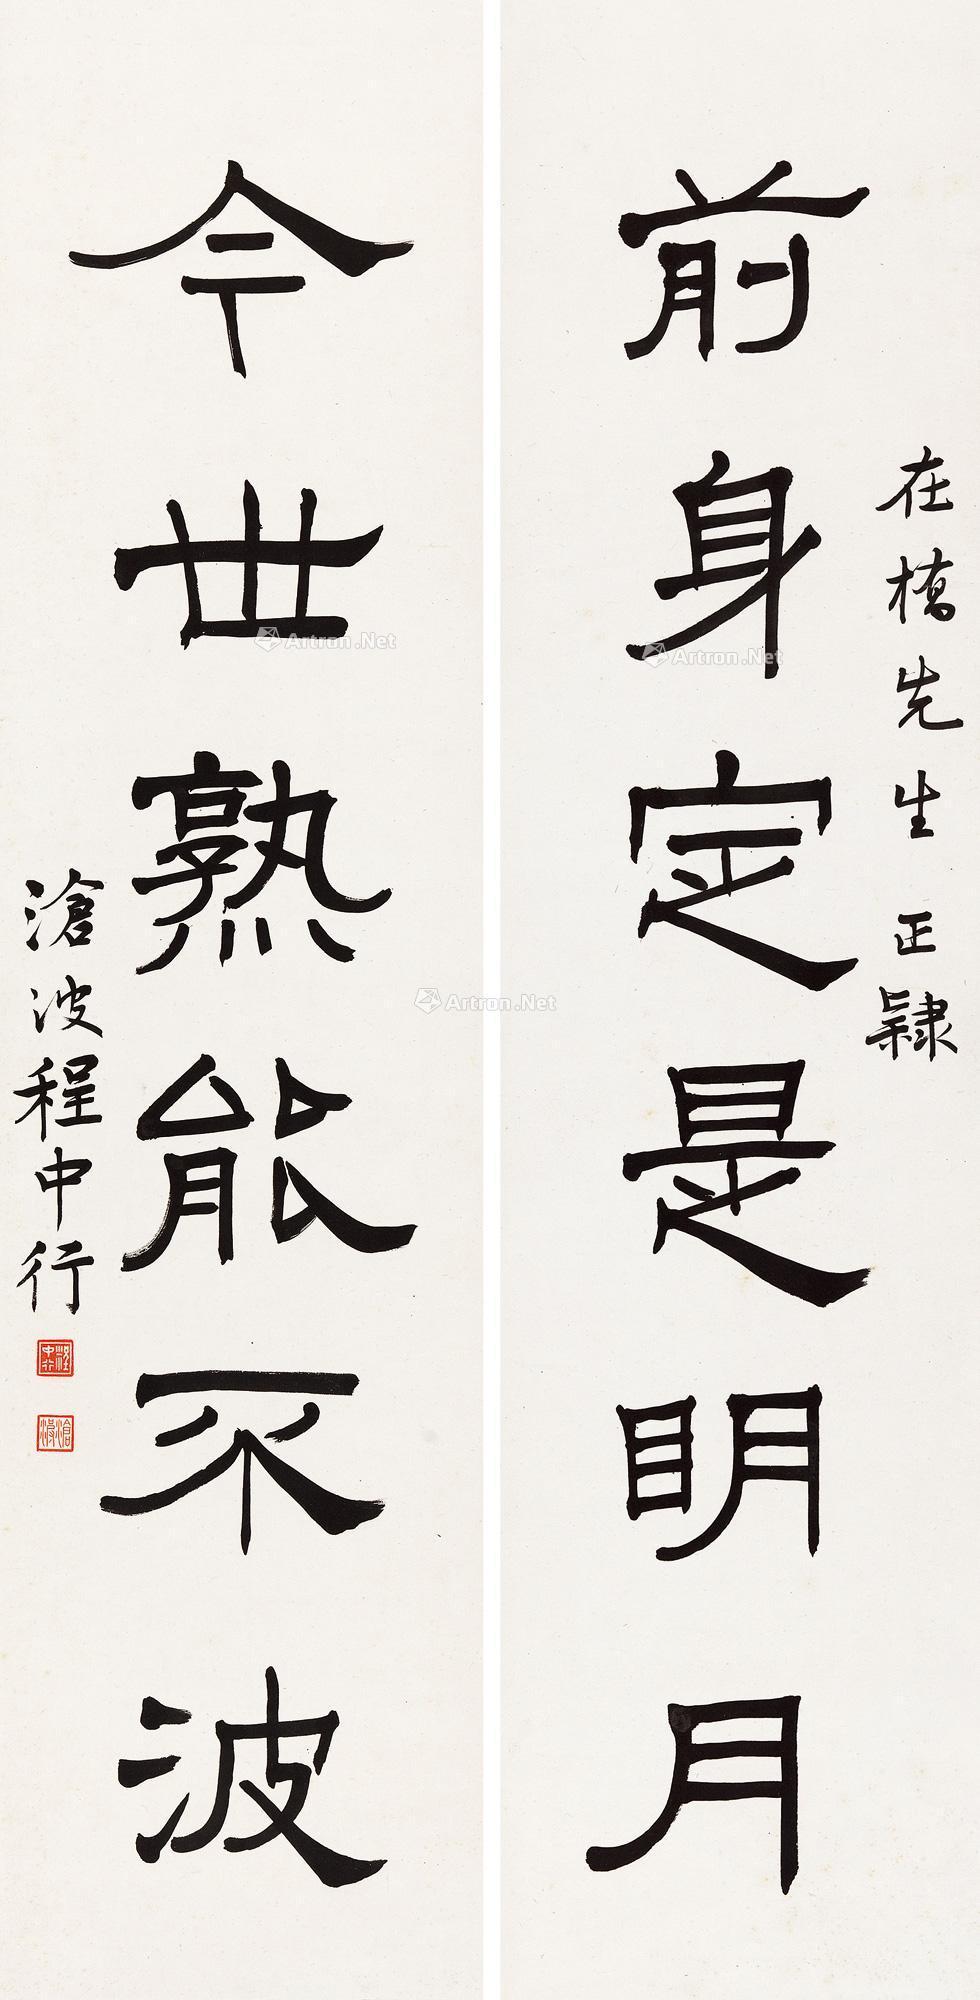 在槗先生 正隸
前身定是明月
今世熟能不波
滄波程中行
程中行
滄波
Artron.Net
Artron.Net
Artron.Net